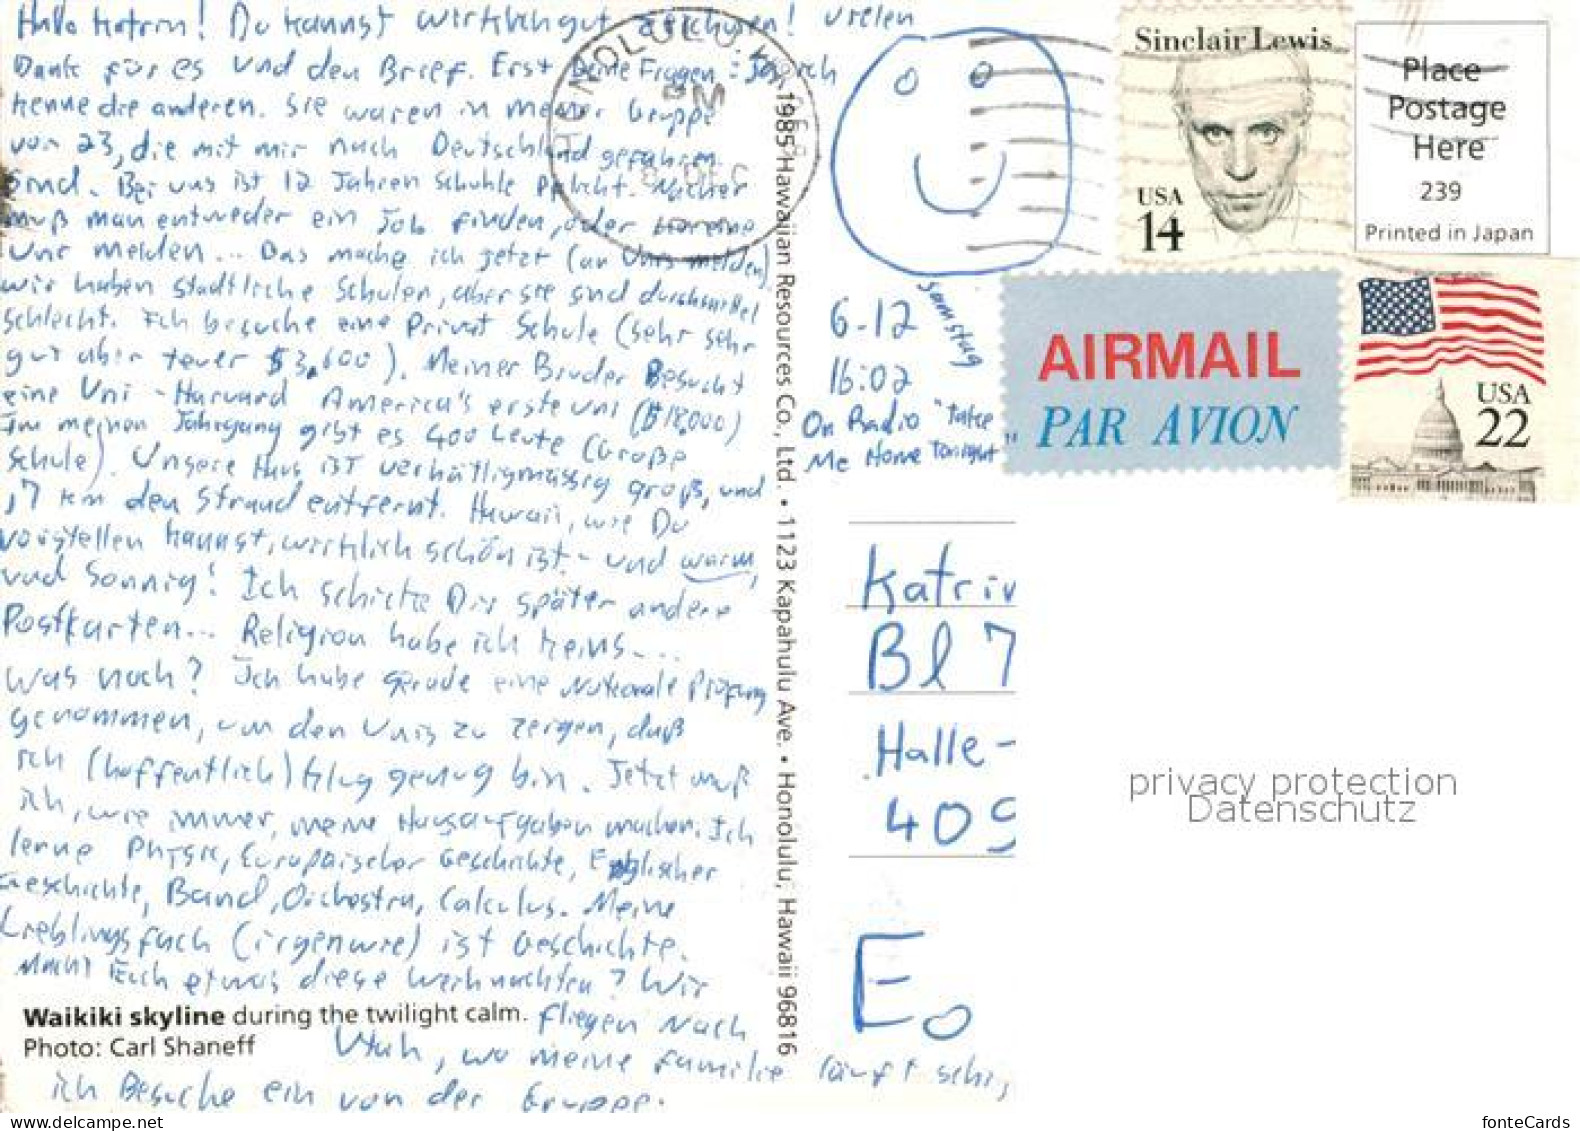 Hallo Katrin! Du kannst wirklich gut zeichnen! Vielen
Dank für es und den Brief. Erst Deine Fragen: Ja, ich
kenne die anderen. Sie waren in meiner Gruppe
von 23, die mit mir nach Deutschland gefahren
sind. Bei uns ist 12 Jahren Schuhle Pflicht. Nacher
muß man entweder ein Job finden, oder
Uni melden... Das mache ich jetzt (an Unis melden)
wir haben Stadtliche Schulen, aber sie sind
schlecht. Ich besuche eine Privat Schule (sehr sehr
gut aber teuer $3,600). Meiner Bruder Besucht
eine Uni - Harvard America's erste Uni ($18,000)
Im meinen Jahrgang gibt es 400 Leute (Große
Schule). Unsere Haus ist verhältligmässig groß, und
,7 km den Strand entfernt. Hawaii, wie Du
vorstellen kannst, wirklich schön ist - und warm,
und Sonnig! Ich schicke Dir später andere
Postkarten... Religion habe ich keins....
Was noch? Ich habe gerade eine Nationale Prüfung
genommen, um den Unis zu zeigen, daß
ich (hoffentlich) klug genug bin. Jetzt muß
ich, wie immer, meine Hausaufgaben machen. Ich
lerne Physik, Europaischer Geschichte, Englischer
Geschichte, Band, Orchestra, Calculus. Meine
Lieblingsfach (irgenwie) ist Geschichte.
Macht Euch etwas diese Weihnachten? Wir
fliegen nach
Utah, wo meine Familie läuft schi,
ich Besuche ein von der Gruppe.
Waikiki skyline during the twilight calm.
Photo: Carl Shaneff
1985 Hawaiian Resources Co., Ltd. • 1123 Kapahulu Ave. • Honolulu, Hawaii 96816
HONOLULU,
PM
6 DEC
6-12
Samstag
16:02
On Radio "Take
Me Home Tonight"
Sinclair Lewis
USA
14
Place
Postage
Here
239
Printed in Japan
AIRMAIL
PAR AVION
USA
22
Katrin
Bl 7
Halle-
409
privacy protection
Datenschutz
www.ansichtskartenversand.com
fonteCards